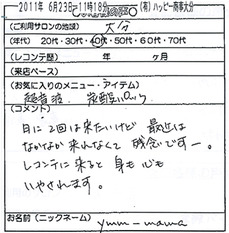 2011年 6月23日11時18分 (有)ハッピー商事大分
(ご利用サロンの地域) 大分
(年代) 20代・30代・40代・50代・60代・70代
(レコンテ歴) 年 ヶ月
(来店ペース)
(お気に入りのメニュー・アイテム)
超音波、炭酸パック
(コメント)
月に2回は来たいけど 最近は
なかなか来れなくて 残念ですー。
レコンテに来ると 身も心も
いやされます。
お名前(ニックネーム) yumi-mama